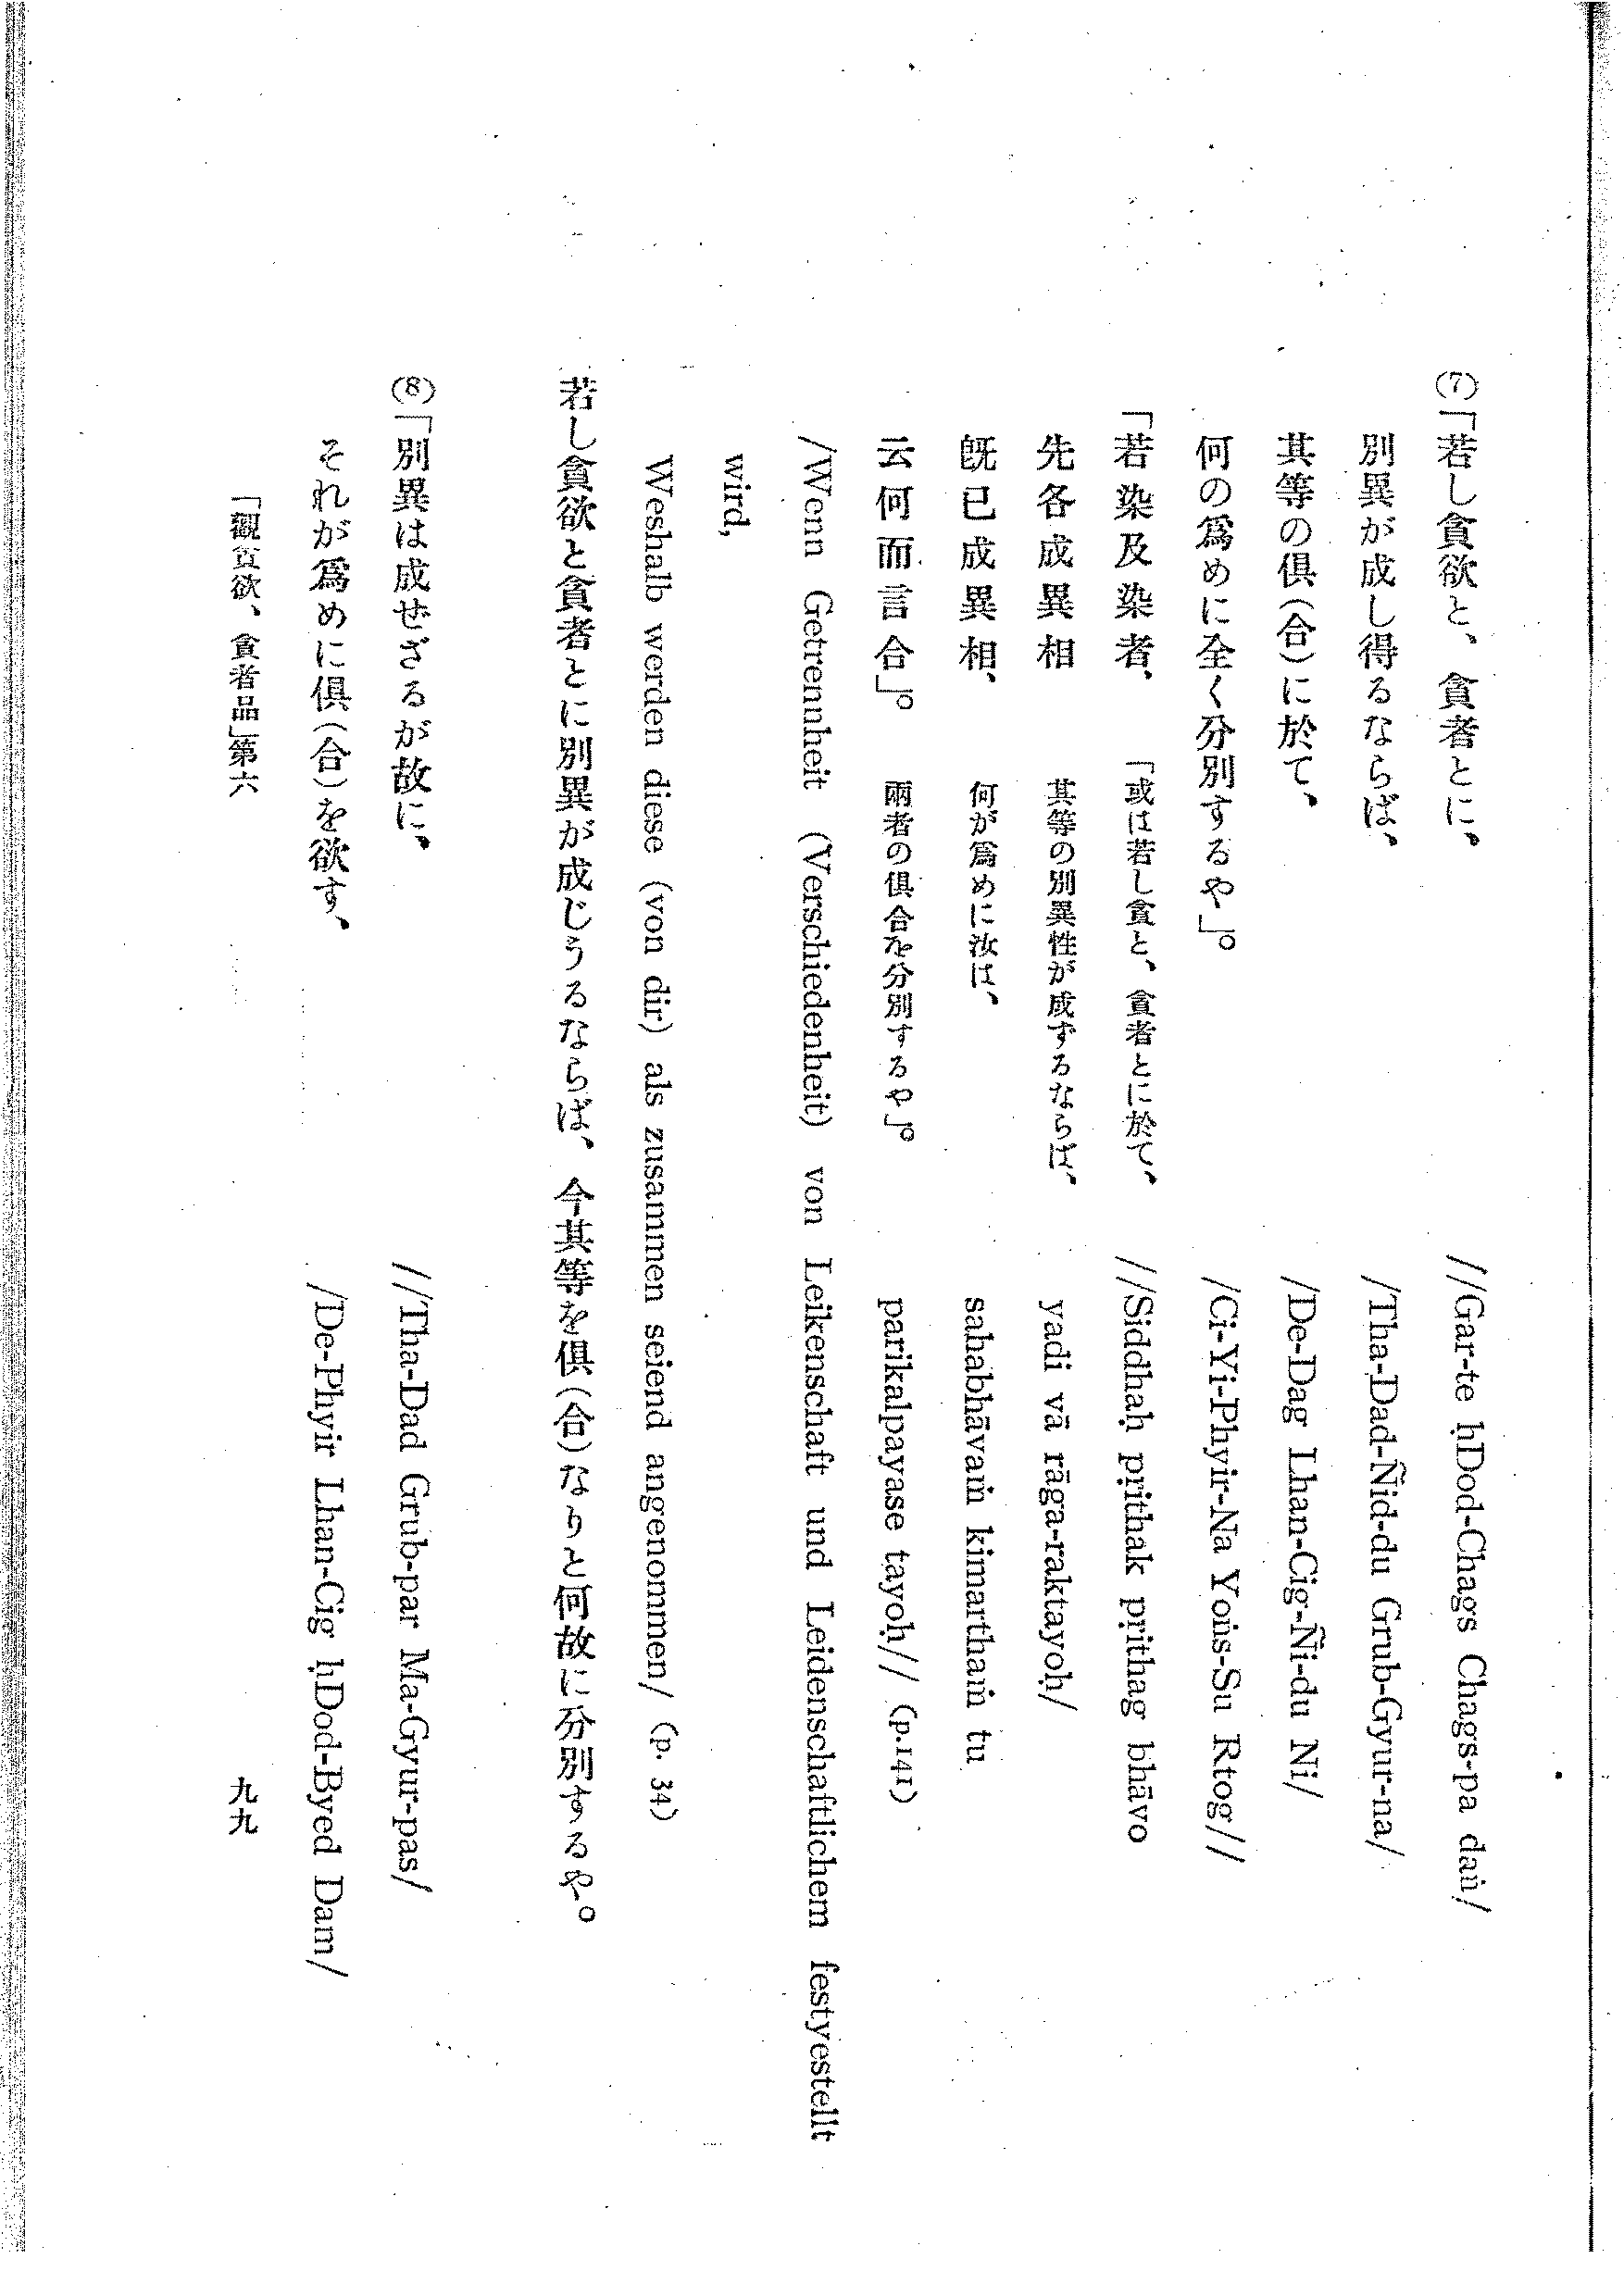 (7)「若し貪欲と、貪者とに、
//Gar-te ḥDod-Chags Chags-pa daṅ/
別異が成し得るならば、
/Tha-Dad-Ñid-du Grub-Gyur-na/
其等の俱(合)に於て、
/De-Dag Lhan-Cig-Ñi-du Ni/
何の爲めに全く分別するや」。
/Ci-Yi-Phyir-Na Yoṅs-Su Rtog//
「若染及染者、
「或は若し貪と、貪者とに於て、
//Siddhaḥ pṛithak pṛithag bhāvo
先各成異相
其等の別異性が成ずるならば、
yadi vā rāga-raktayoḥ/
旣已成異相、
何が爲めに汝は、
sahabhāvaṁ kimarthaṁ tu
云何而言合」。
兩者の俱合を分別するや」。
parikalpayase tayoḥ// (p.141)
/Wenn Getrennheit (Verschiedenheit) von Leikenschaft und Leidenschaftlichem festyestellt
wird,
Weshalb werden diese (von dir) als zusammen seiend angenommen/ (p. 34)
若し貪欲と貪者とに別異が成じうるならば、今其等を俱(合)なりと何故に分別するや。
(8)「別異は成せざるが故に、
//Tha-Dad Grub-par Ma-Gyur-pas/
それが爲めに俱(合)を欲す、
/De-Phyir Lhan-Cig ḥDod-Byed Dam/
「觀貪欲、貪者品」第六
九九